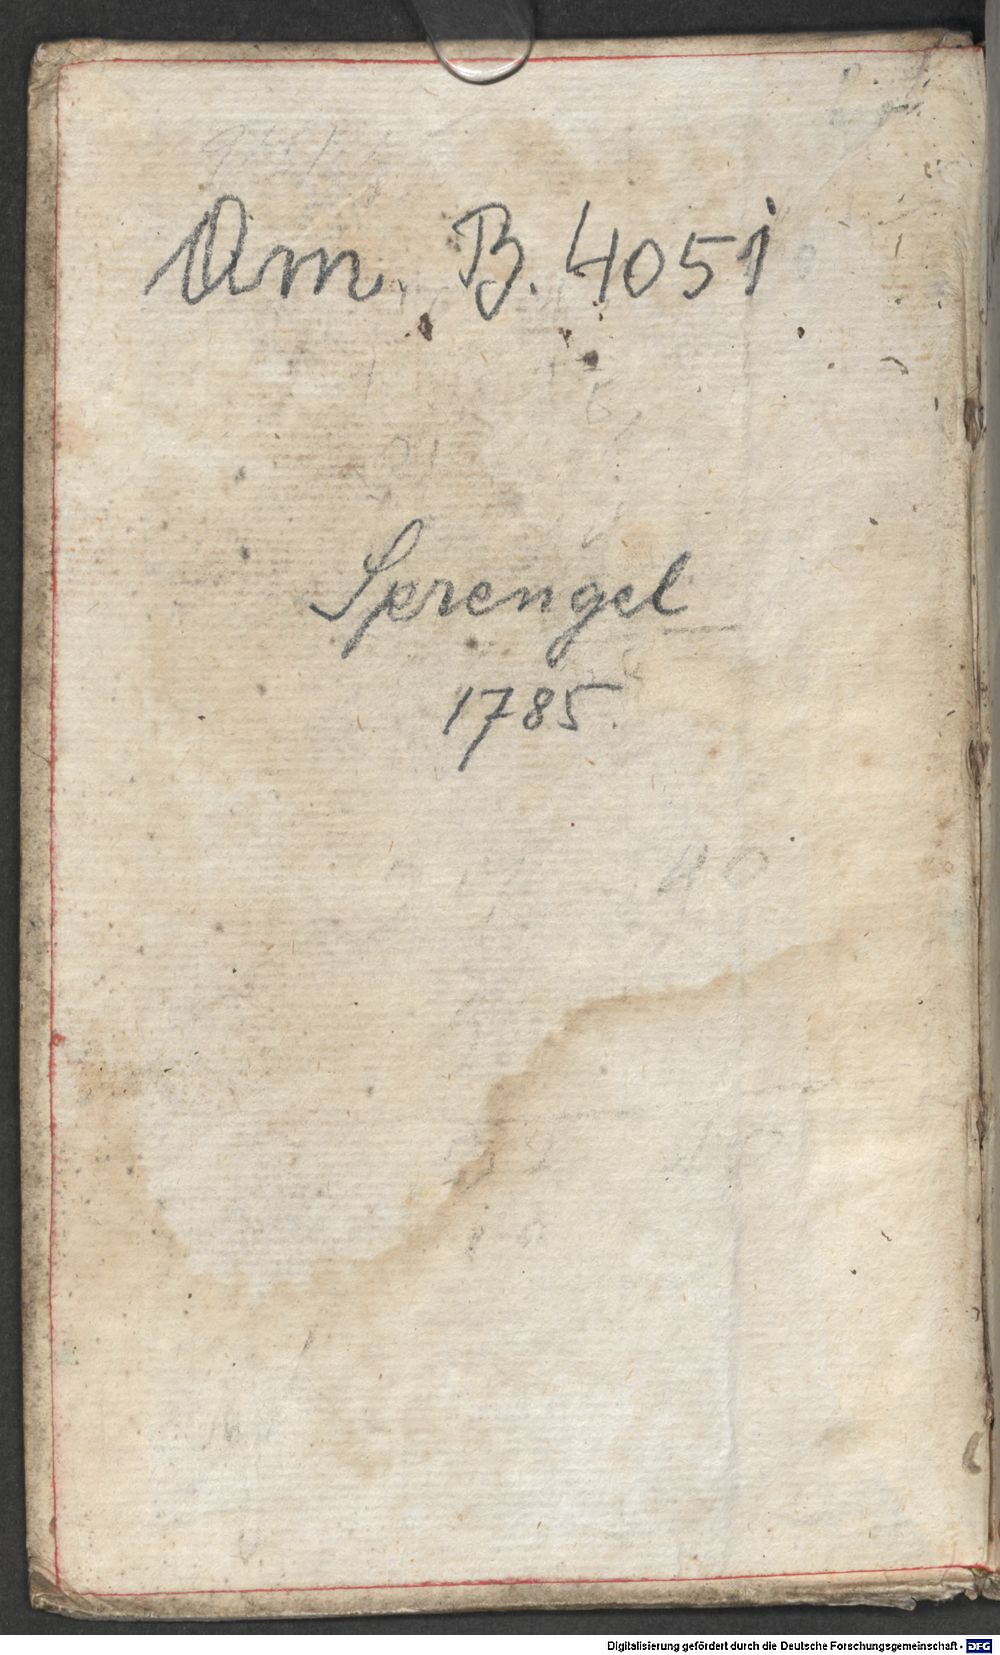 Am. B. 4051
Sprengel
1785.
40
Digitalisierung gefördert durch die Deutsche Forschungsgemeinschaft - DFG